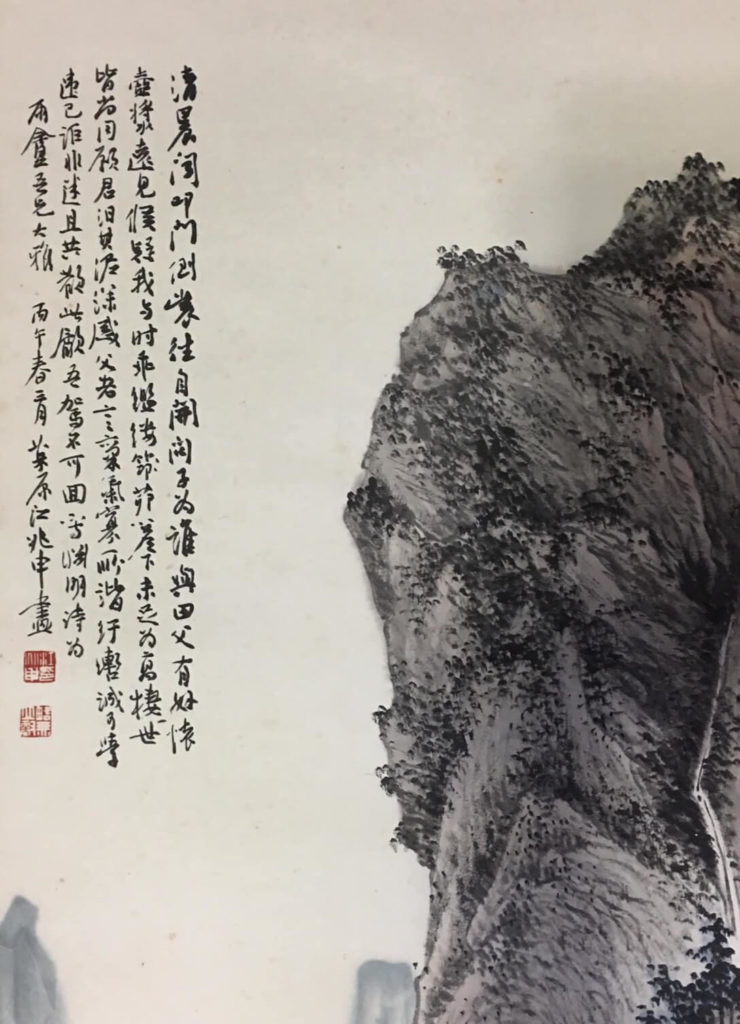 清晨闻叩门倒裳往自開问子为誰與田父有好懷
壺漿遠見候疑我与时乖繿缕茆簷下未足为高棲世
皆尚同願君汨其泥深感父老言稟氣寡所諧紆轡誠可學
違己詎非迷且共歡此飲吾駕不可回寫淵明诗为
雨盦吾兄大雅 丙午春三月 茮原江兆申畫